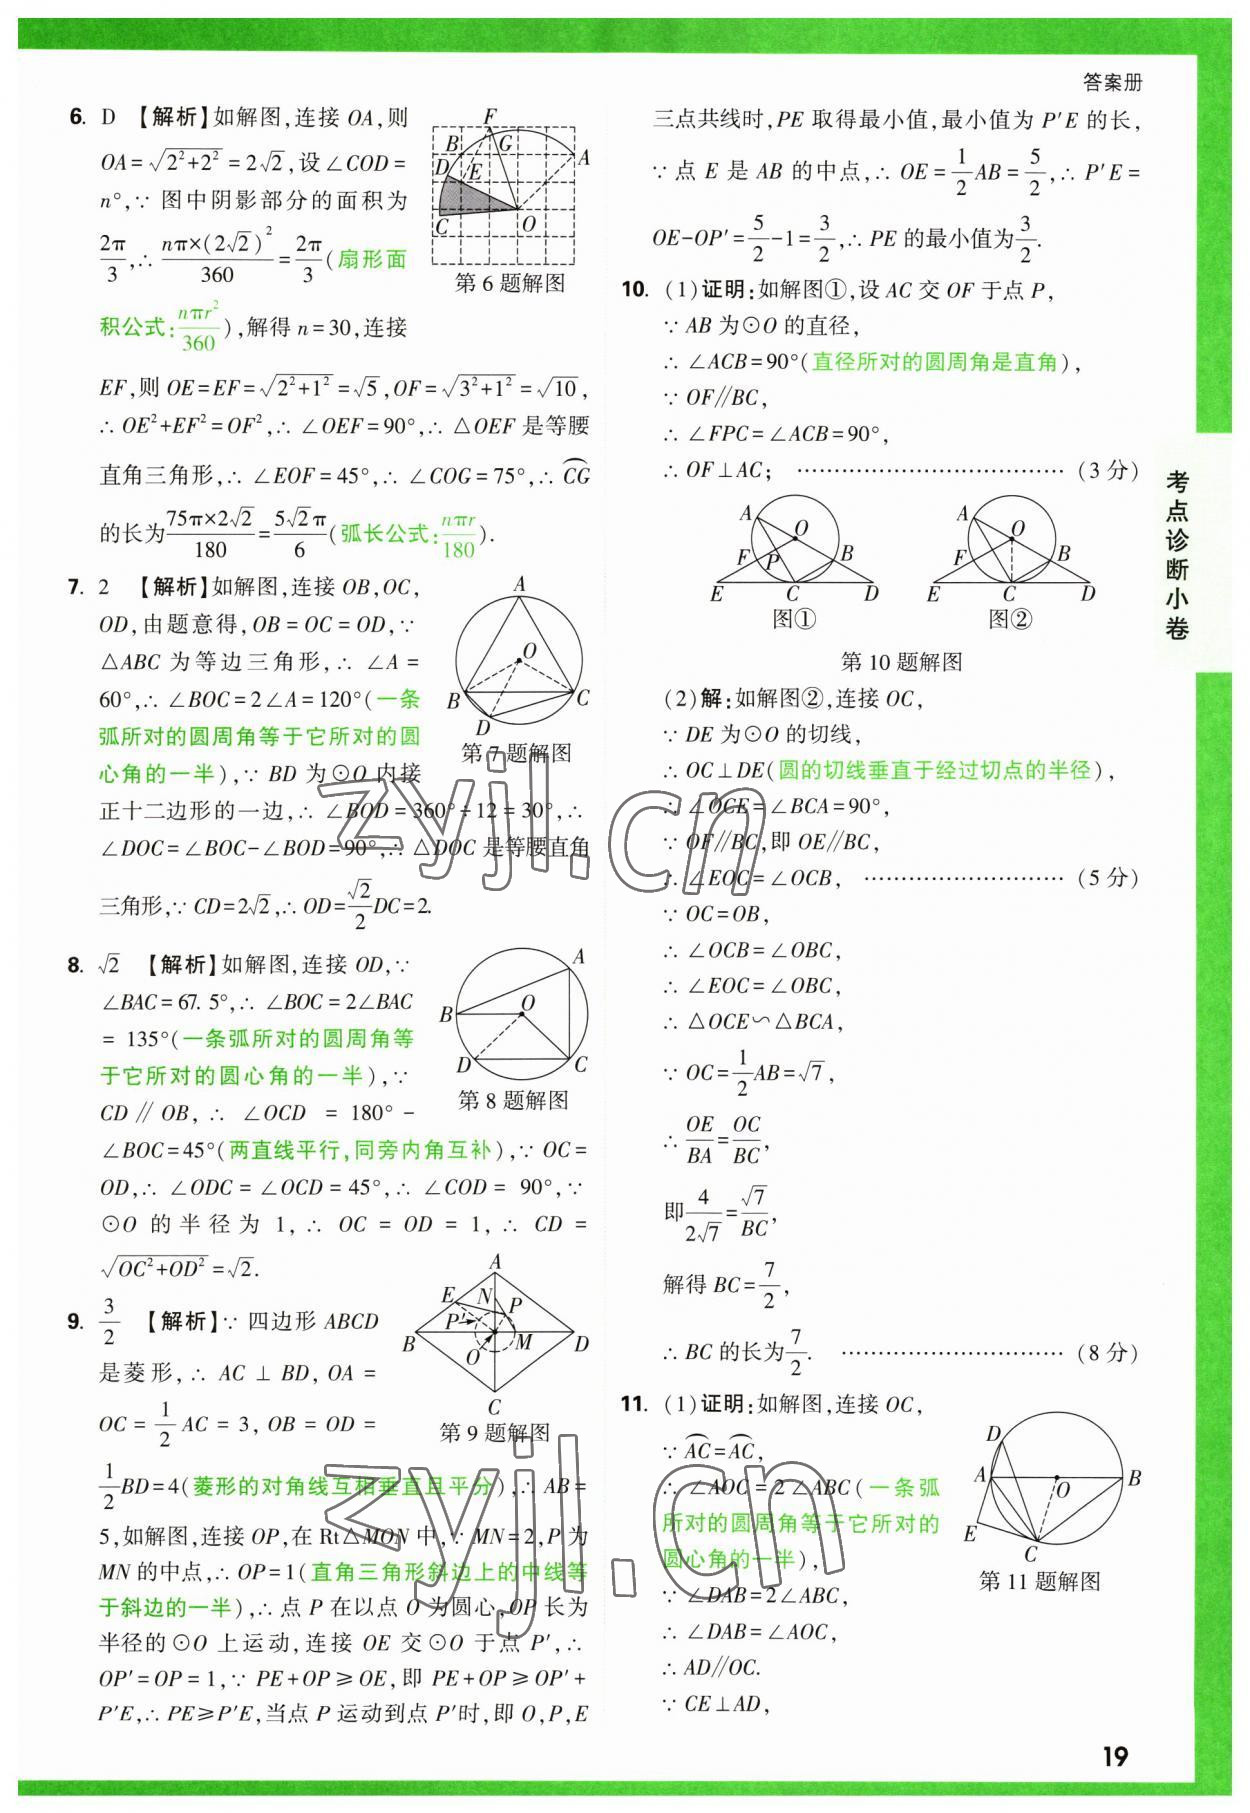 答案册
6. D 【解析】如解图,连接 OA,则
OA=√(2²+2²)=2√2,设∠COD=
n°,∵ 图中阴影部分的面积为
2π/3,∴ nπ×(2√2)²/360=2π/3(扇形面
积公式:nπr²/360),解得 n=30,连接
F
B G A
D E
C O
第 6 题解图
EF,则 OE=EF=√(2²+1²)=√5,OF=√(3²+1²)=√10,
∴ OE²+EF²=OF²,∴ ∠OEF=90°,∴ △OEF 是等腰
直角三角形,∴ ∠EOF=45°,∴ ∠COG=75°,∴ ⌒CG
的长为75π×2√2/180=5√2π/6(弧长公式:nπr/180).
7. 2 【解析】如解图,连接 OB,OC,
OD,由题意得,OB=OC=OD,∵
△ABC 为等边三角形,∴ ∠A=
60°,∴ ∠BOC=2∠A=120°(一条
弧所对的圆周角等于它所对的圆
心角的一半),∵ BD 为⊙O 内接
A
O
B C
D
第 7 题解图
正十二边形的一边,∴ ∠BOD=360°÷12=30°,∴
∠DOC=∠BOC-∠BOD=90°,∴ △DOC 是等腰直角
三角形,∵ CD=2√2,∴ OD=√2/2DC=2.
8. √2 【解析】如解图,连接 OD,∵
∠BAC=67.5°,∴ ∠BOC=2∠BAC
=135°(一条弧所对的圆周角等
于它所对的圆心角的一半),∵
CD∥OB,∴ ∠OCD=180°-
A
B O
D C
第 8 题解图
∠BOC=45°(两直线平行,同旁内角互补),∵ OC=
OD,∴ ∠ODC=∠OCD=45°,∴ ∠COD=90°,∵
⊙O 的半径为 1,∴ OC=OD=1,∴ CD=
√(OC²+OD²)=√2.
9. 3/2 【解析】∵ 四边形 ABCD
是菱形,∴ AC⊥BD,OA=
OC=1/2AC=3,OB=OD=
A
E N P
P′
B M D
O
C
第 9 题解图
1/2BD=4(菱形的对角线互相垂直且平分),∴ AB=
5,如解图,连接 OP,在 Rt△MON 中,∵ MN=2,P 为
MN 的中点,∴ OP=1(直角三角形斜边上的中线等
于斜边的一半),∴ 点 P 在以点 O 为圆心,OP 长为
半径的⊙O 上运动,连接 OE 交⊙O 于点 P′,∴
OP′=OP=1,∵ PE+OP≥OE,即 PE+OP≥OP′+
P′E,∴ PE≥P′E,当点 P 运动到点 P′时,即 O,P,E
三点共线时,PE 取得最小值,最小值为 P′E 的长,
∵ 点 E 是 AB 的中点,∴ OE=1/2AB=5/2,∴ P′E=
OE-OP′=5/2-1=3/2,∴ PE 的最小值为3/2.
10. (1)证明:如解图①,设 AC 交 OF 于点 P,
∵ AB 为⊙O 的直径,
∴ ∠ACB=90°(直径所对的圆周角是直角),
∵ OF∥BC,
∴ ∠FPC=∠ACB=90°,
∴ OF⊥AC; ………………………………(3 分)
A O F P B E C D
图①
A O F B E C D
图②
第 10 题解图
(2)解:如解图②,连接 OC,
∵ DE 为⊙O 的切线,
∴ OC⊥DE(圆的切线垂直于经过切点的半径),
∴ ∠OCE=∠BCA=90°,
∵ OF∥BC,即 OE∥BC,
∴ ∠EOC=∠OCB, ………………………(5 分)
∵ OC=OB,
∴ ∠OCB=∠OBC,
∴ ∠EOC=∠OBC,
∴ △OCE∽△BCA,
∵ OC=1/2AB=√7,
∴ OE/BA=OC/BC,
即4/2√7=√7/BC,
解得 BC=7/2,
∴ BC 的长为7/2. …………………………(8 分)
11. (1)证明:如解图,连接 OC,
∵ ⌒AC=⌒AC,
∴ ∠AOC=2∠ABC(一条弧
所对的圆周角等于它所对的
圆心角的一半),
∵ ∠DAB=2∠ABC,
∴ ∠DAB=∠AOC,
∴ AD∥OC.
∵ CE⊥AD,
D
A O B
E
C
第 11 题解图
考点诊断小卷
19
zyjl.cn
zyjl.cn